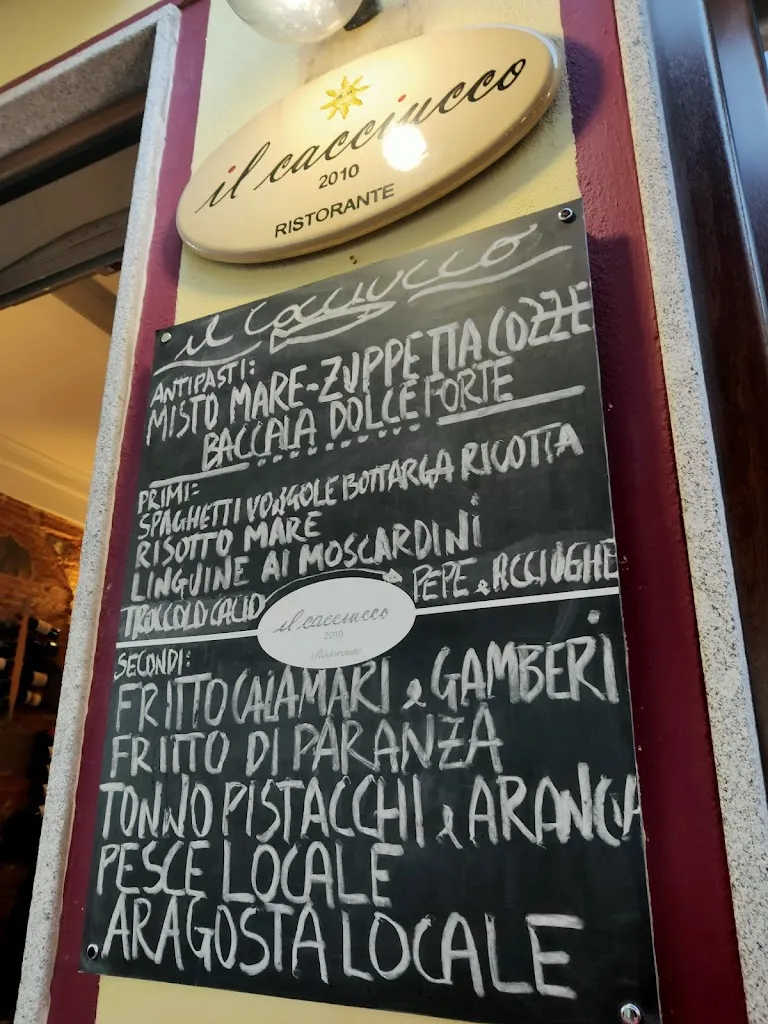 il cacciucco
2010
RISTORANTE
il cacciucco
ANTIPASTI:
MISTO MARE-ZUPPETTA COZZE
BACCALA DOLCE FORTE
PRIMI:
SPAGHETTI VONGOLE BOTTARGA RICOTTA
RISOTTO MARE
LINGUINE AI MOSCARDINI
TROCCOLO CACIO PEPE e ACCIUGHE
il cacciucco
2010
Ristorante
SECONDI:
FRITTO CALAMARI e GAMBERI
FRITTO DI PARANZA
TONNO PISTACCHI e ARANCIA
PESCE LOCALE
ARAGOSTA LOCALE